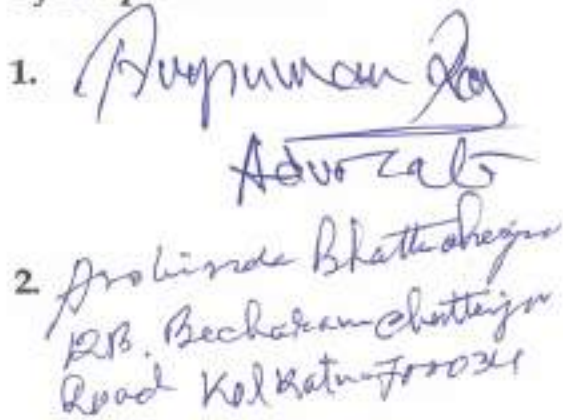 1. Anypuman Roy
Advocate
2. Arobinda Bhattacharya
12B, Becharam Chatterjee
Road Kolkata-700034